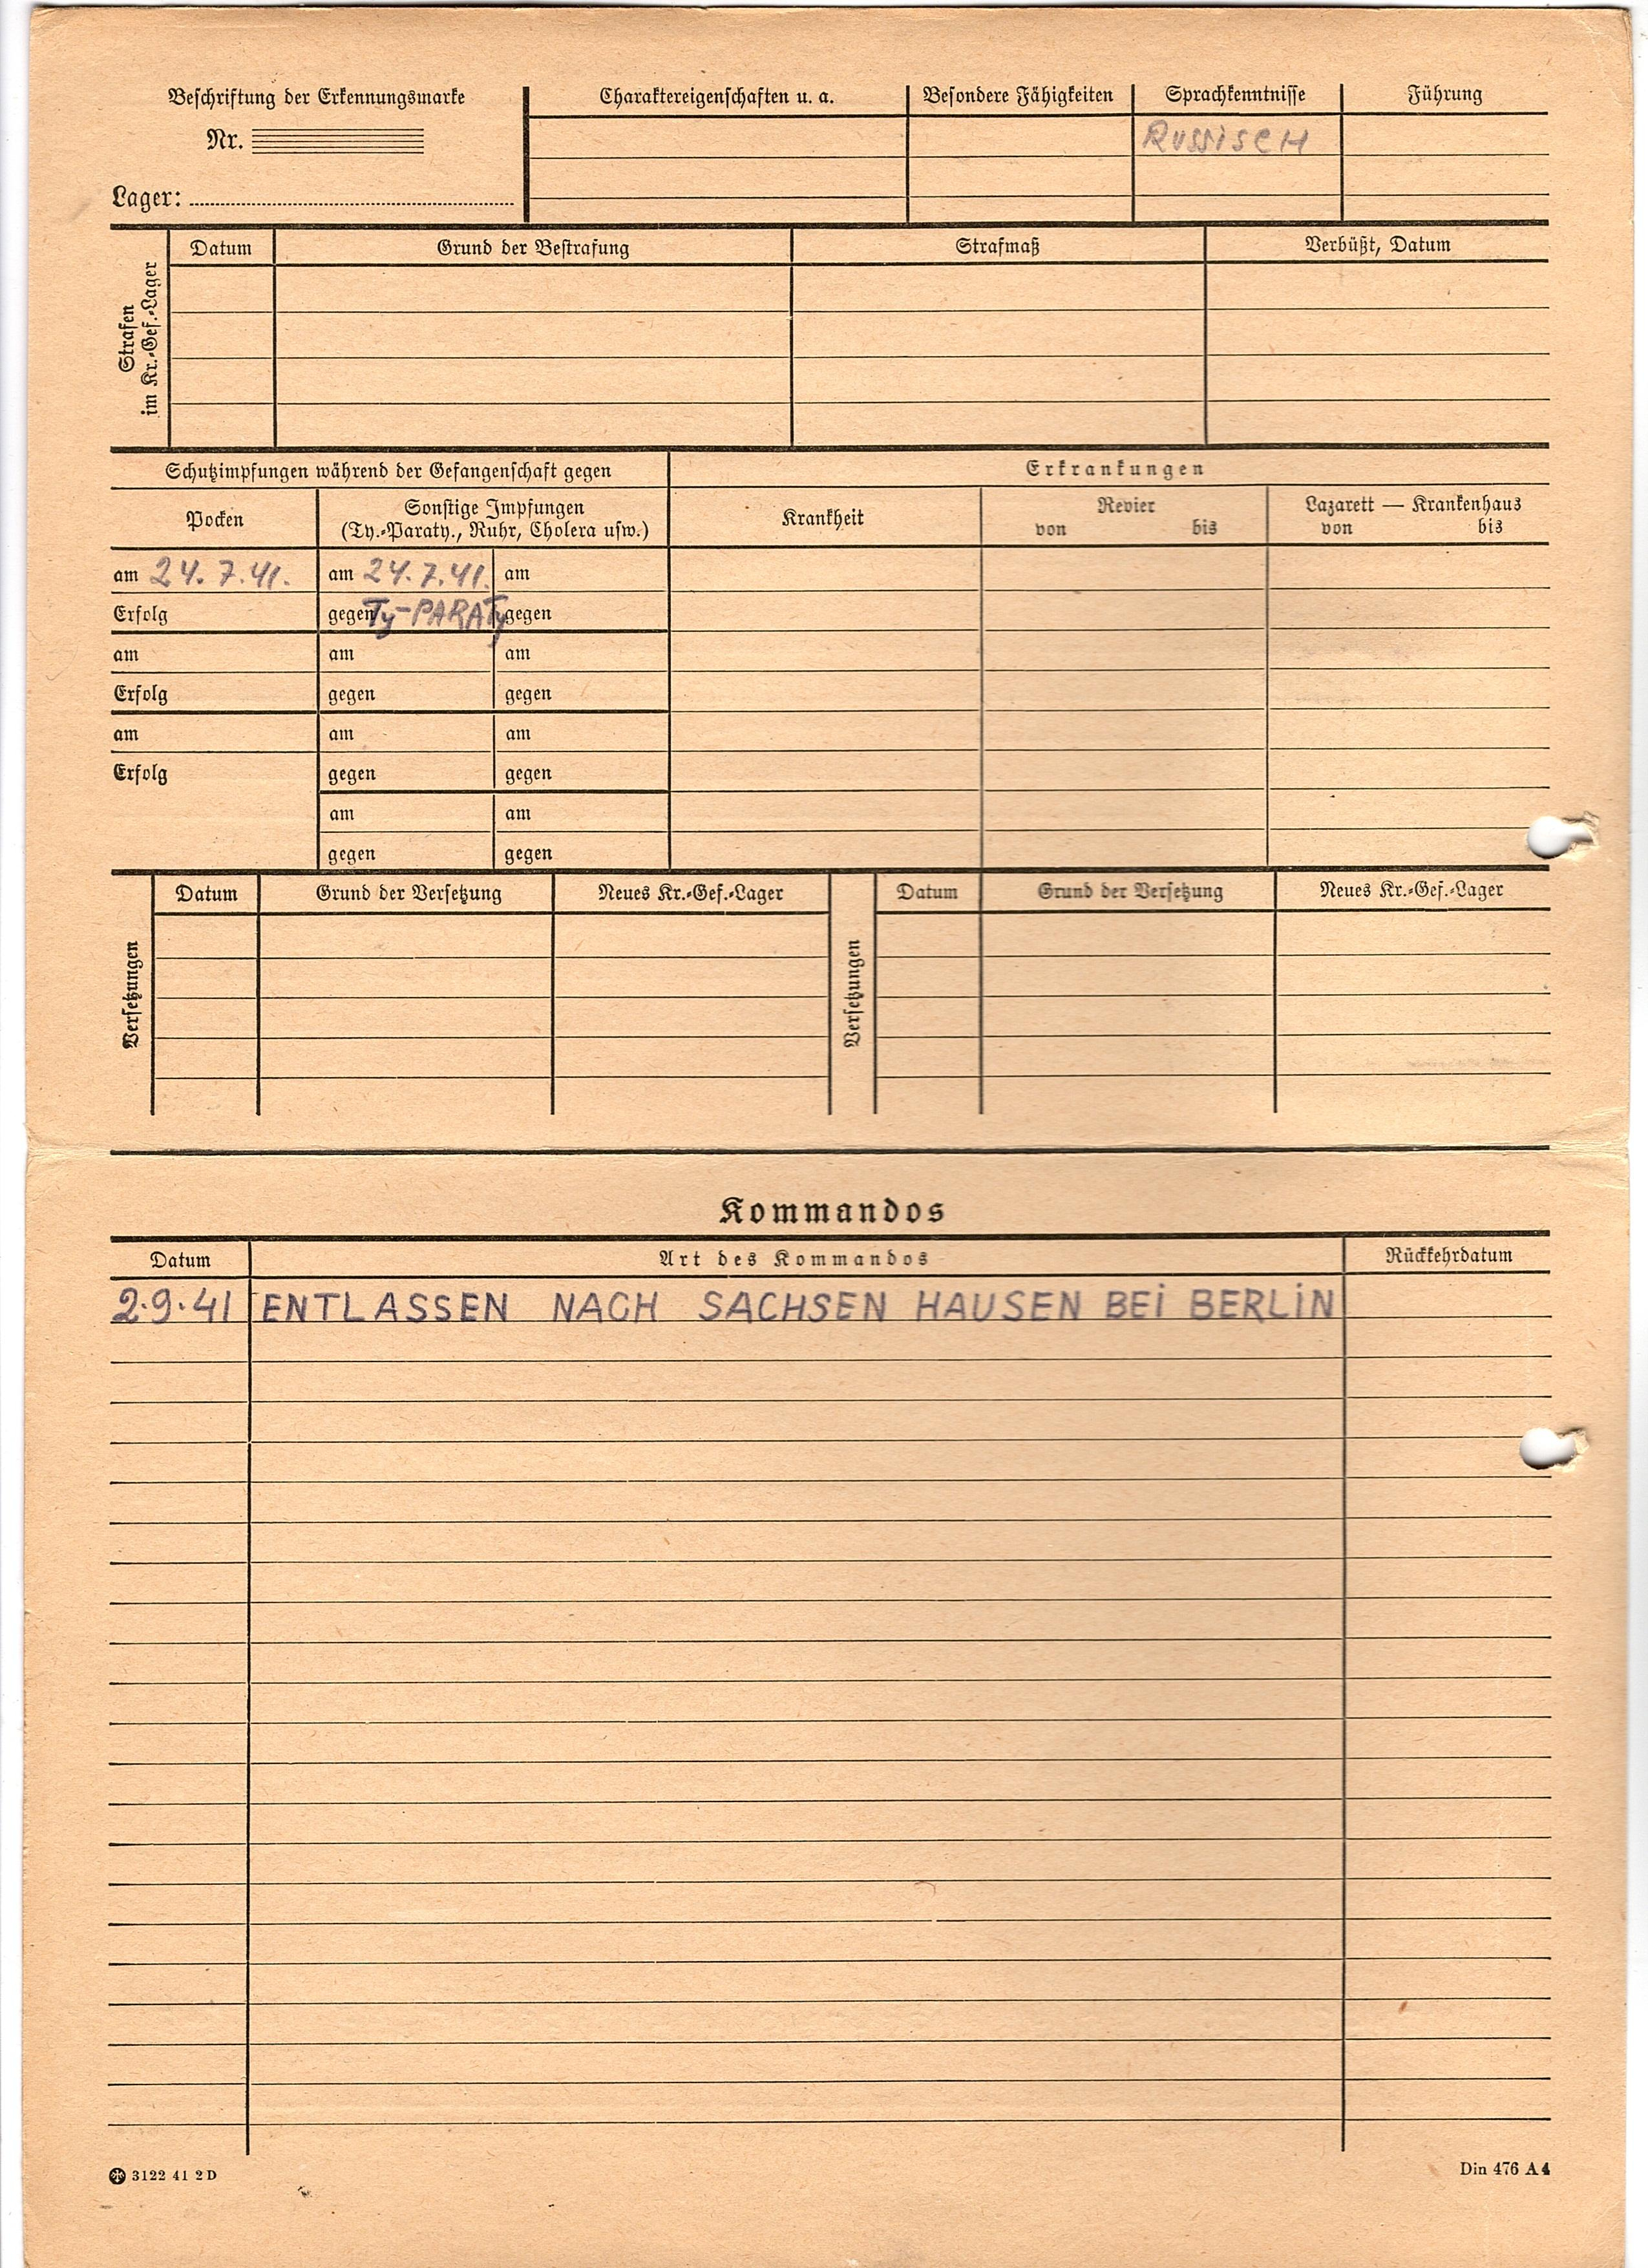 Beschriftung der Erkennungsmarke
Nr.
Lager:
Charaktereigenschaften u. a.
Besondere Fähigkeiten
Sprachkenntnisse
Führung
Russisch
Strafen
im Kr.-Gef.-Lager
Datum
Grund der Bestrafung
Strafmaß
Verbüßt, Datum
Schutzimpfungen während der Gefangenschaft gegen
Erkrankungen
Pocken
Sonstige Impfungen
(Ty.-Paraty., Ruhr, Cholera usw.)
Krankheit
Revier
von bis
Lazarett — Krankenhaus
von bis
am 24.7.41. am 24.7.41. am
Erfolg gegen Ty-PARATy gegen
am am am
Erfolg gegen gegen
am am am
Erfolg gegen gegen
am am
gegen gegen
Versetzungen
Datum Grund der Versetzung Neues Kr.-Gef.-Lager
Versetzungen
Datum Grund der Versetzung Neues Kr.-Gef.-Lager
Kommandos
Datum Art des Kommandos Rückkehrdatum
2.9.41 ENTLASSEN NACH SACHSEN HAUSEN BEi BERLiN
3122 41 2 D
Din 476 A 4